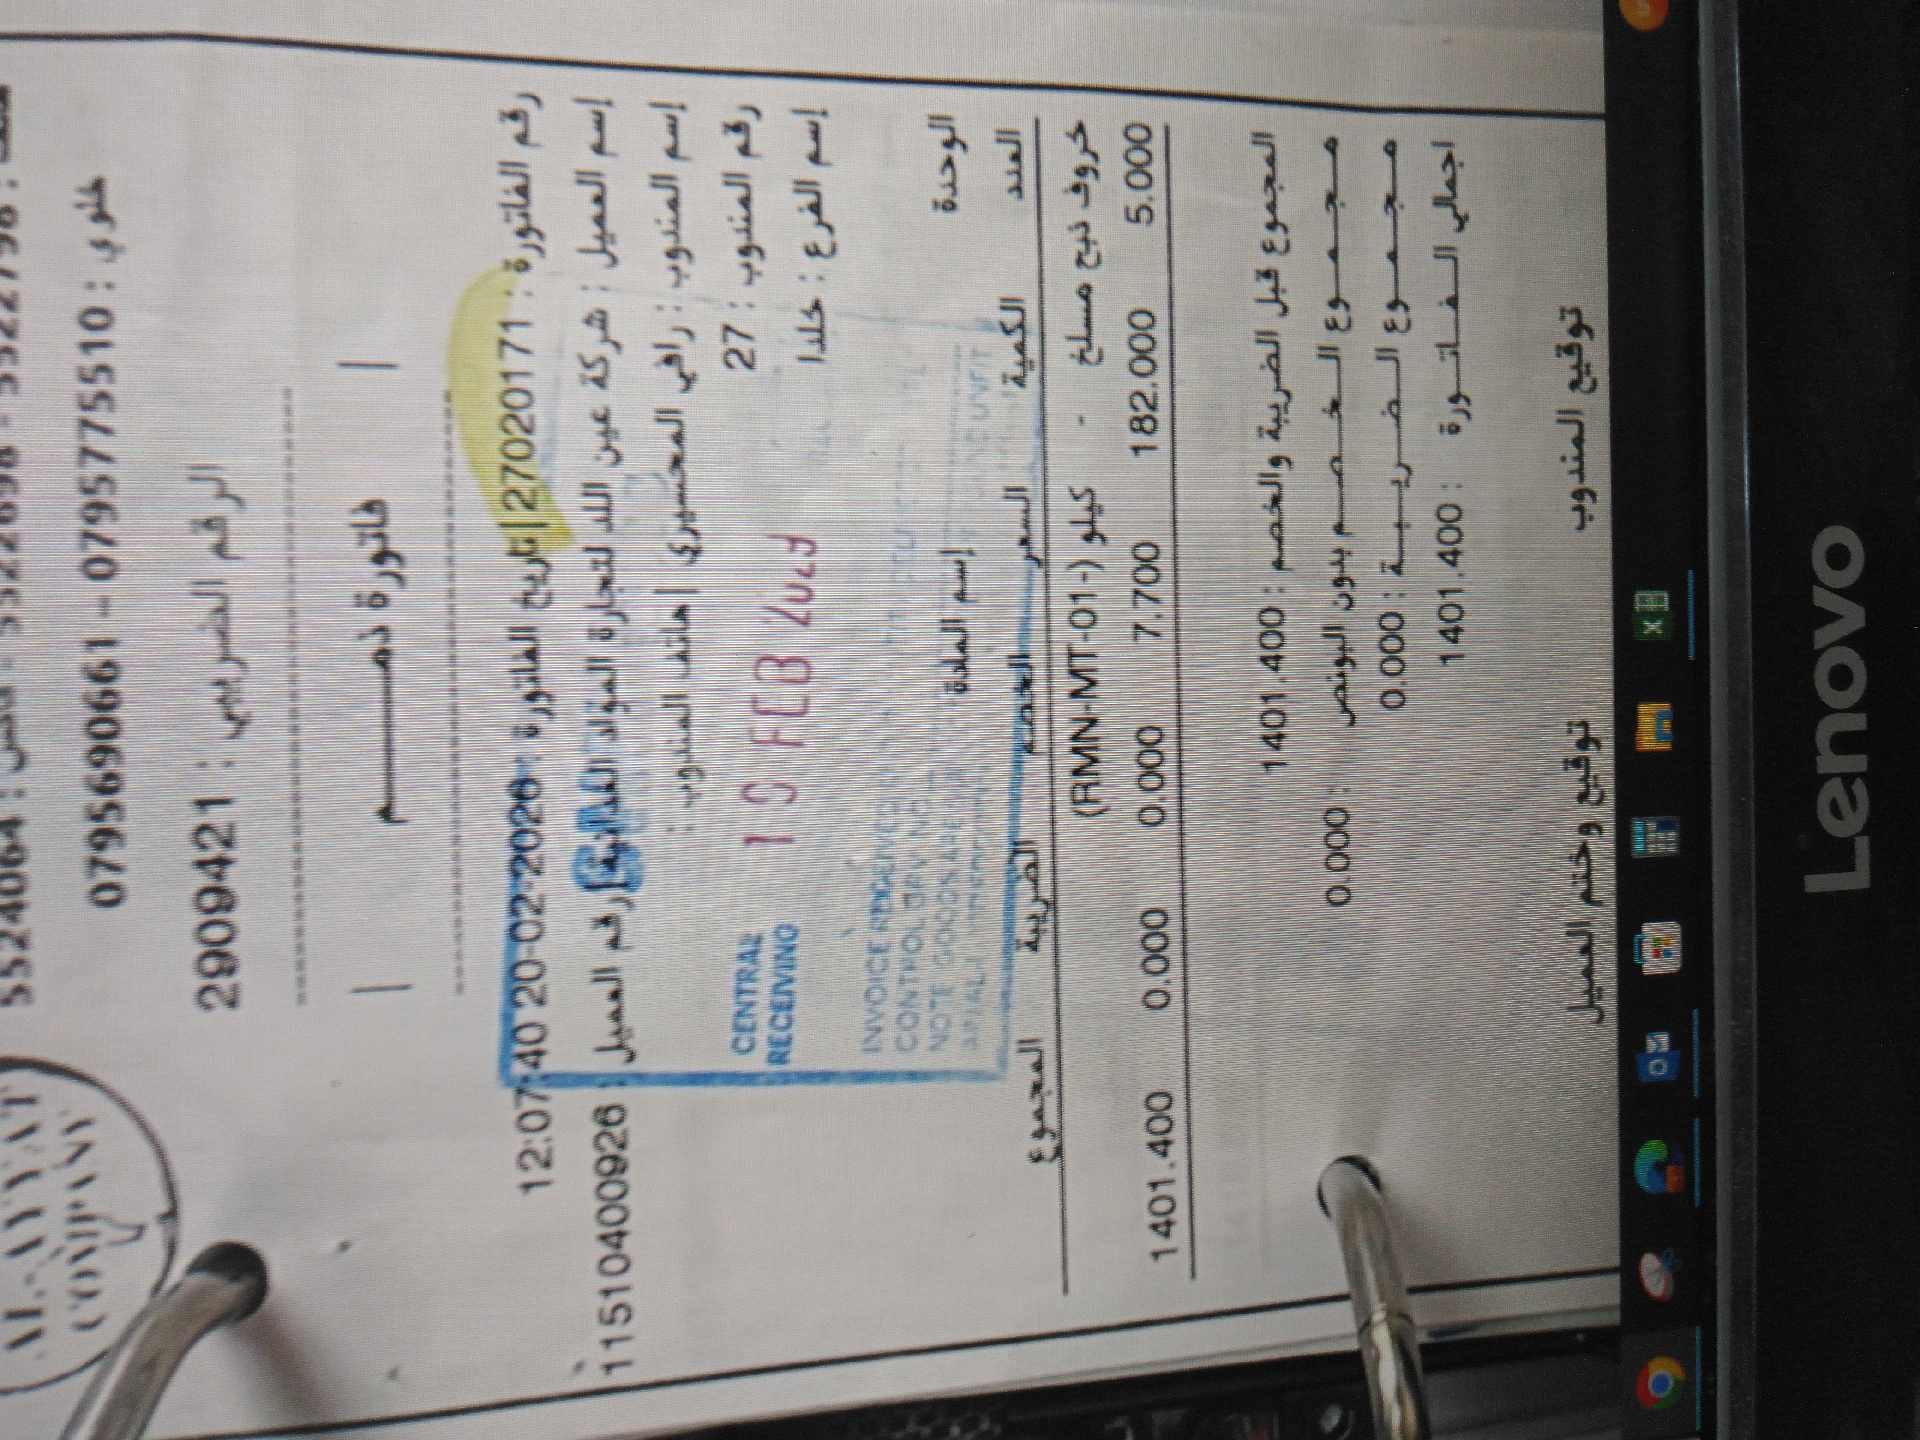 5524064
0795690661 - 0795775510 : خلوي
الرقم الضريبي : 2909421
فاتورة ذمــــم
رقم الفاتورة : 270202017١ | تاريخ الفاتورة : 20-02-2026 12:07:40
إسم العميل : شركة عين اللد لتجارة المواد الغذائية | رقم العميل : 1151040092٦
إسم المندوب : رافي المحسيري | هاتف المندوب :
رقم المندوب : 27
إسم الفرع : خلدا
CENTRAL
RECEIVING
FEB
INVOICE RECEIVED
CONTROL
NOTE GOODS ARE
الوحدة إسم المادة
العدد الكمية السعر الخصم الضريبة المجموع
خروف ذبح مسلخ - كيلو (-RMN-MT-01)
5.000 182.000 7.700 0.000 0.000 1401.400
المجموع قبل الضريبة والخصم : 1401.400
مـجـمـوع الـخـصـم بدون البونص : 0.000
مـجـمـوع الـضـريـبـة : 0.000
اجمالي الـفـاتـورة : 1401.400
توقيع المندوب توقيع وختم العميل
Lenovo